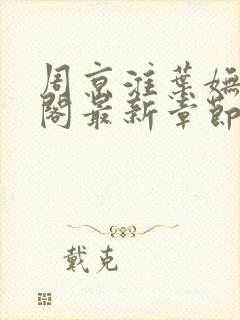 周京淮葉嫵
閣最新章節
戴克